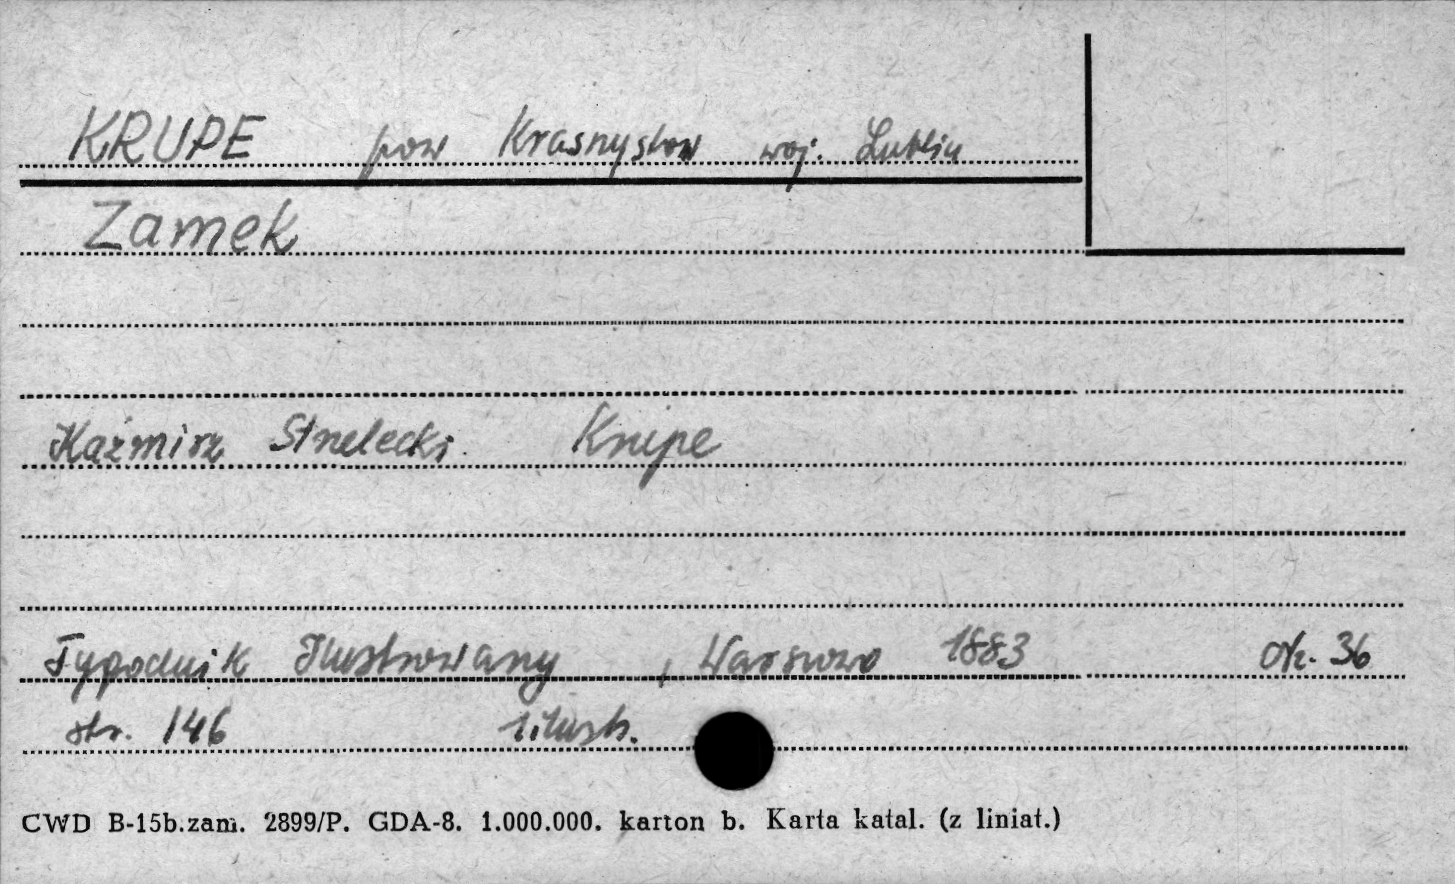 KRUPE pow Krasnystaw woj. Lublin
Zamek
Kaźmirz Strzelecki. Krupe
Tygodnik Ilustrowany, Warszawa 1883 Nr. 36
str. 146 1 ilustr.
CWD B-15b.zam. 2899/P. GDA-8. 1.000.000. karton b. Karta katal. (z liniat.)